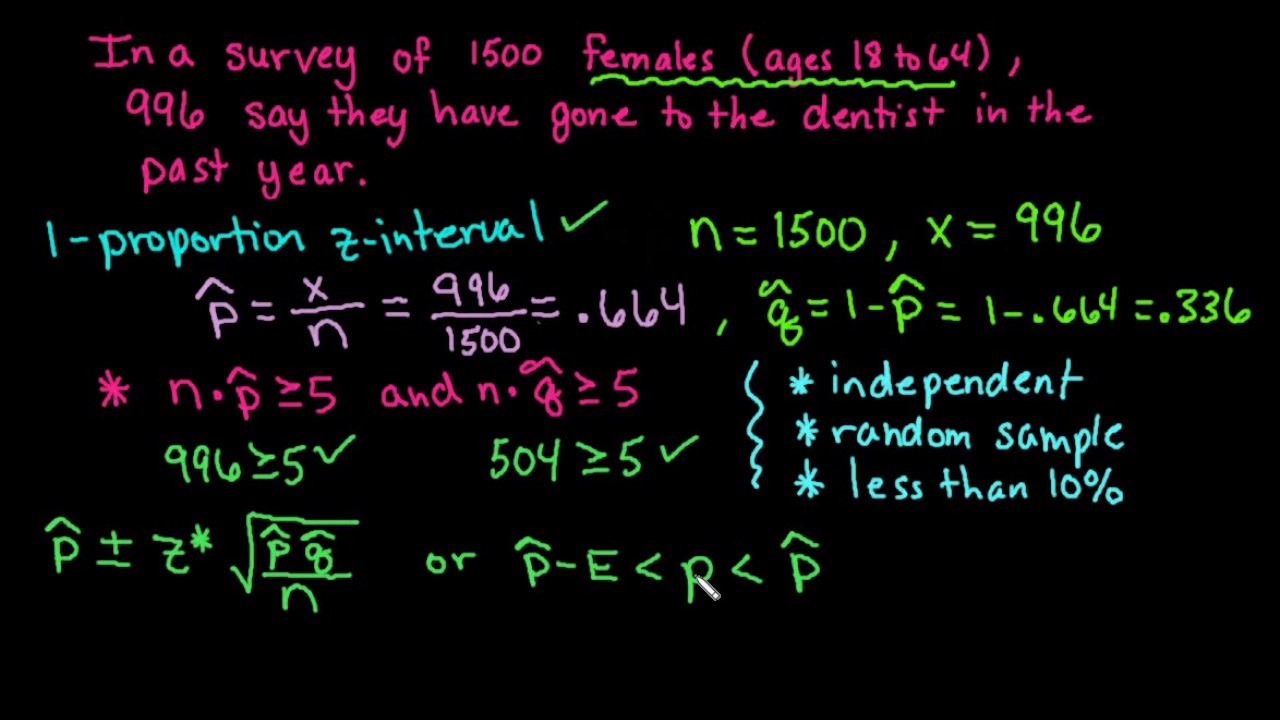 In a survey of 1500 females (ages 18 to 64),
996 say they have gone to the dentist in the
past year.
1-proportion z-interval ✓ n = 1500, x = 996
p̂ = x/n = 996/1500 = .664, q̂ = 1-p̂ = 1-.664 = .336
* n·p̂ ≥ 5 and n·q̂ ≥ 5
996 ≥ 5 ✓ 504 ≥ 5 ✓
* independent
* random sample
* less than 10%
p̂ ± z* √(p̂ q̂/n) or p̂ - E < p < p̂